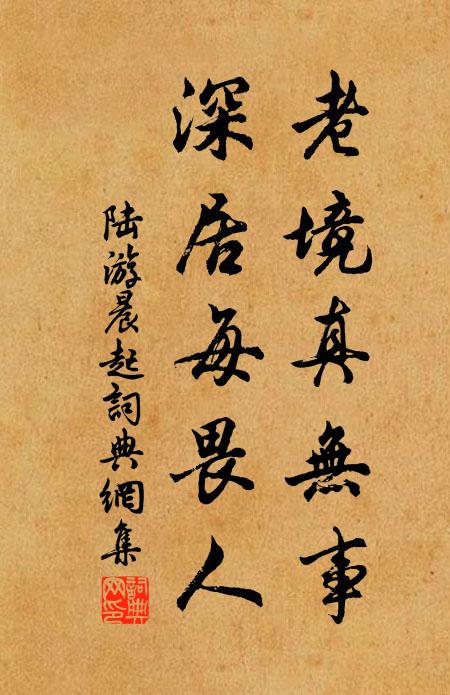 老境真無事
深居每畏人
陆游晨起詞典網集
詞典
网印